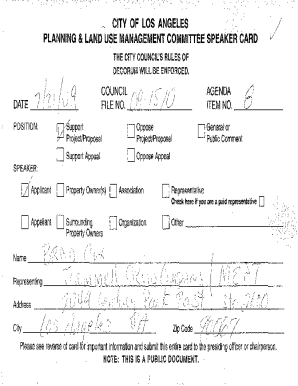 CITY OF LOS ANGELES
PLANNING & LAND USE MANAGEMENT COMMITTEE SPEAKER CARD
THE CITY COUNCIL'S RULES OF
DECORUM WILL BE ENFORCED.
DATE COUNCIL FILE NO. AGENDA ITEM NO. 6
POSITION: Support Project/Proposal Oppose Project/Proposal General or Public Comment
Support Appeal Oppose Appeal
SPEAKER:
Applicant Property Owner(s) Association Representative
Check here if you are a paid representative
Appellant Surrounding Property Owners Organization Other
Name Brad Cox
Representing Trammell
Address Century Park East
City Los Angeles CA Zip Code 90067
Please see reverse of card for important information and submit this entire card to the presiding officer or chairperson.
NOTE: THIS IS A PUBLIC DOCUMENT.